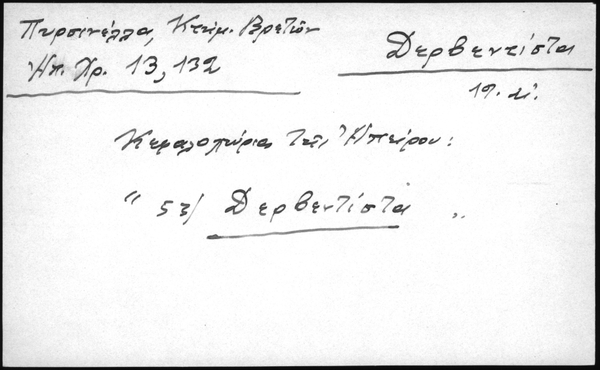 Πυρσινέλλα, Κτημ. Βρετῶν
Ἠπ. Χρ. 13, 132
Δερβεντίστα
19. αἰ.
Κεφαλοχώρια τῆς Ἠπείρου:
" 53/ Δερβεντίστα "